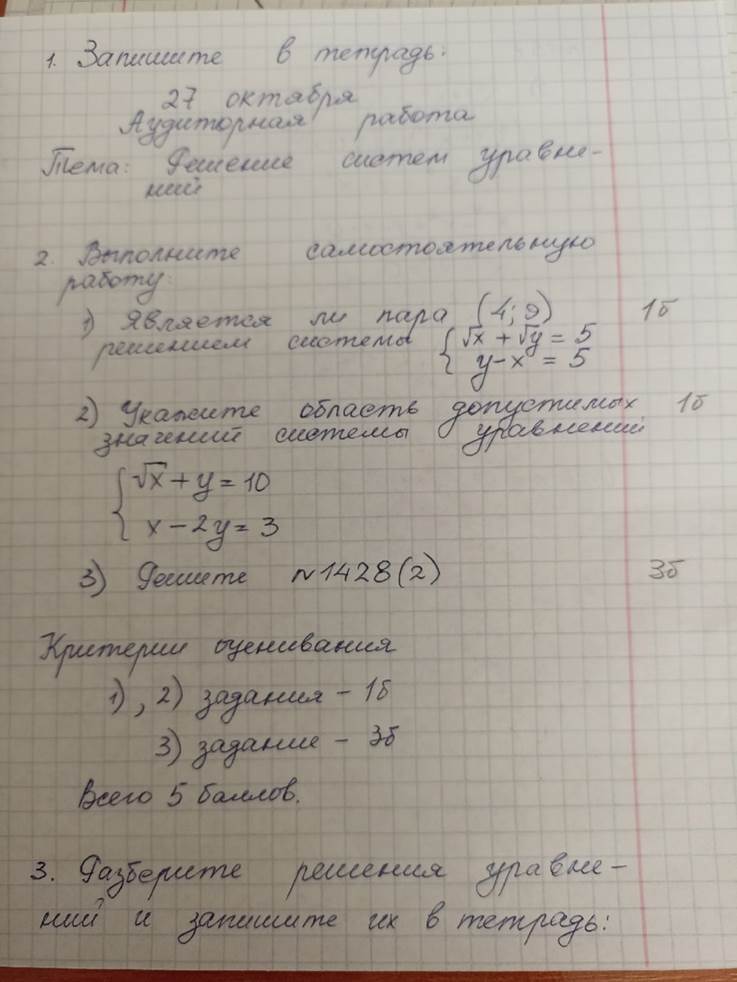 1. Запишите в тетрадь:
27 октября
Аудиторная работа
Тема: Решение систем уравне-
ний
2. Выполните самостоятельную
работу:
1) Является ли пара (4; 9) 1б
решением системы { √x + √y = 5
y - x = 5
2) Укажите область допустимых 1б
значений системы уравнений
{ √x + y = 10
x - 2y = 3
3) Решите №1428(2) 3б
Критерии оценивания
1), 2) задания - 1б
3) задание - 3б
Всего 5 баллов.
3. Разберите решения уравне-
ний и запишите их в тетрадь: